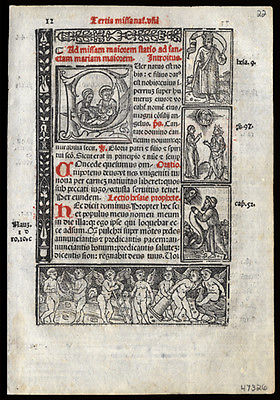 11 Tertia missa nat. dñi 22
Ad missam maiorem statio ad san-
ctam mariam maiorem. Introitus.
Puer natus est no
bis: et filius dat9
est nobis: cuius i
imperiũ super hu
merum eius: et vo
cabit nomẽ eius
magni consilij an
gelus. ps. Can
tate domino can
ticum nouum: quia
mirabilia fecit. Gloria patri et filio et spiri
tui sc̃o. Sicut erat in principio et nũc et semp
Concede quesumus om- Oratio.
nipotens deus: vt nos vnigeniti tui
noua per carnem natiuitas liberet: quos
sub peccati iugo vetusta seruitus tenet.
Per eundem. Lectio ysaie prophete.
Hec dicit dominus. Propter hoc sci
et populus meus nomen meum in
die illa: quia ego ipse qui loquebar ec
ce adsum. Quã pulcri super mõtes pedes
annunciantis et predicantis pacem: an-
nunciantis bonum: predicantis salutẽ:
dicentis sion: regnabit deus tuus. Vox
ysaia. 9.
ps. 97.
cap. 52.
47326